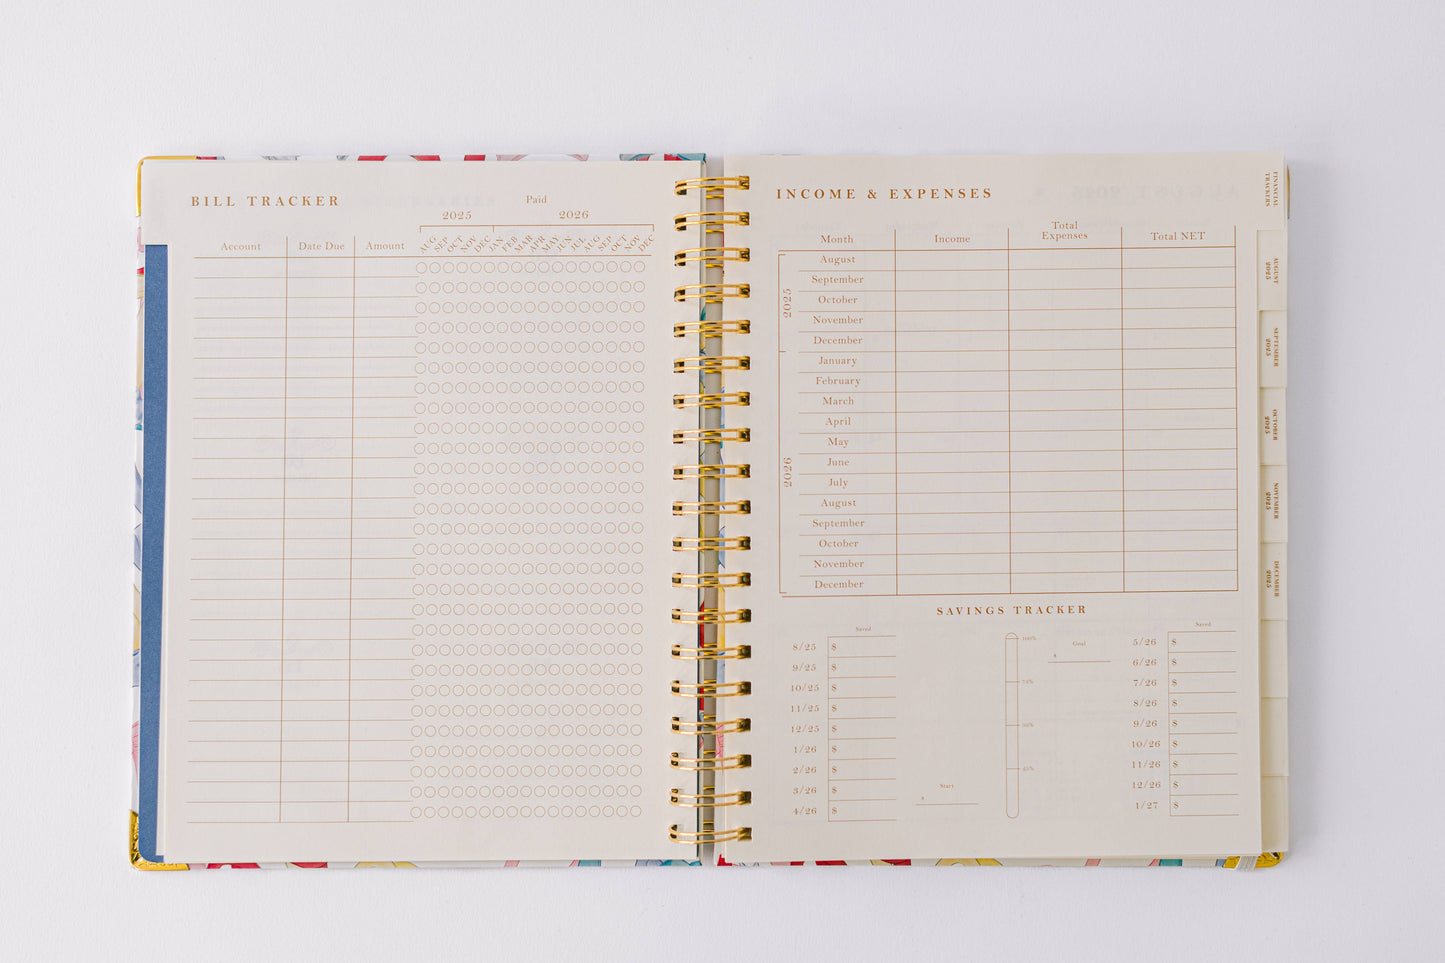 BILL TRACKER
Paid
2025 2026
Account Date Due Amount AUG SEP OCT NOV DEC JAN FEB MAR APR MAY JUN JUL AUG SEP OCT NOV DEC
INCOME & EXPENSES
Month Income Total Expenses Total NET
2025
August
September
October
November
December
2026
January
February
March
April
May
June
July
August
September
October
November
December
SAVINGS TRACKER
Saved
8/25 $
9/25 $
10/25 $
11/25 $
12/25 $
1/26 $
2/26 $
3/26 $
4/26 $
Start
$
100%
75%
50%
25%
Goal
$
Saved
5/26 $
6/26 $
7/26 $
8/26 $
9/26 $
10/26 $
11/26 $
12/26 $
1/27 $
FINANCIAL
TRACKERS
AUGUST
2025
SEPTEMBER
2025
OCTOBER
2025
NOVEMBER
2025
DECEMBER
2025